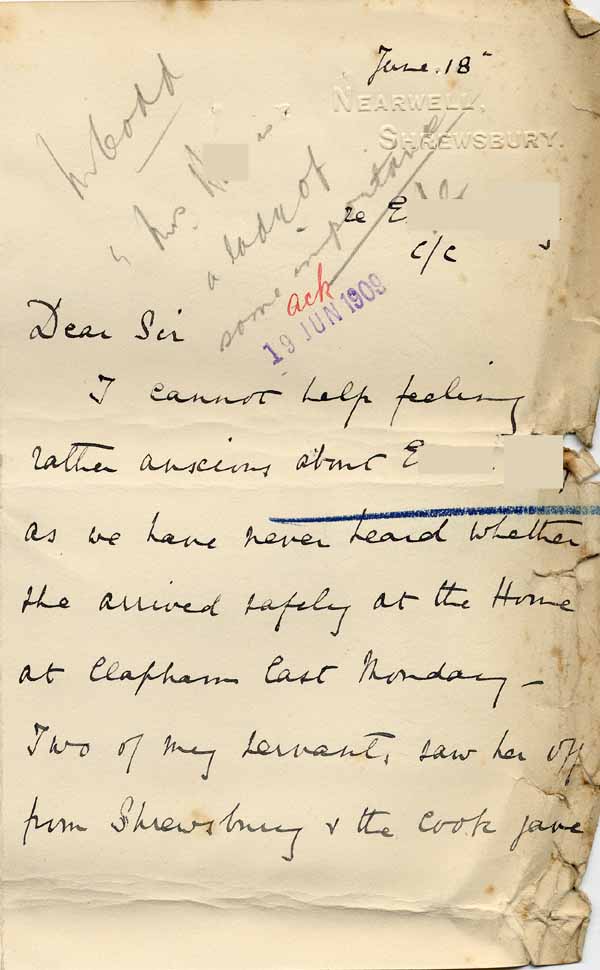 June. 18"
NEARWELL,
SHREWSBURY.
Mr Codd
"Mrs. K is
a lady of
some importance
re E
c/c
ack
19 JUN 1909
Dear Sir
I cannot help feeling
rather anxious about E
as we have never heard whether
she arrived safely at the Home
at Clapham last Monday -
Two of my servants, saw her off
from Shrewsbury & the cook gave